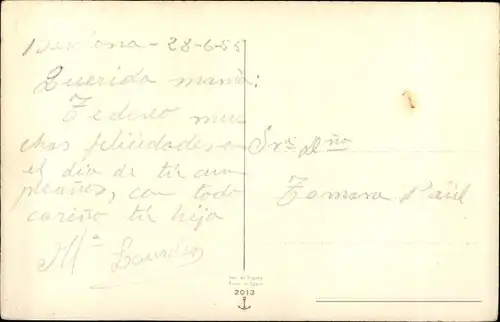 28-6-55
Querida mamá:
Te deseo mu
chas felicidades en
el día de tu cum
pleaños, con todo
cariño tu hija
Mª Lourdes
Sra Dña
Tamara
2013